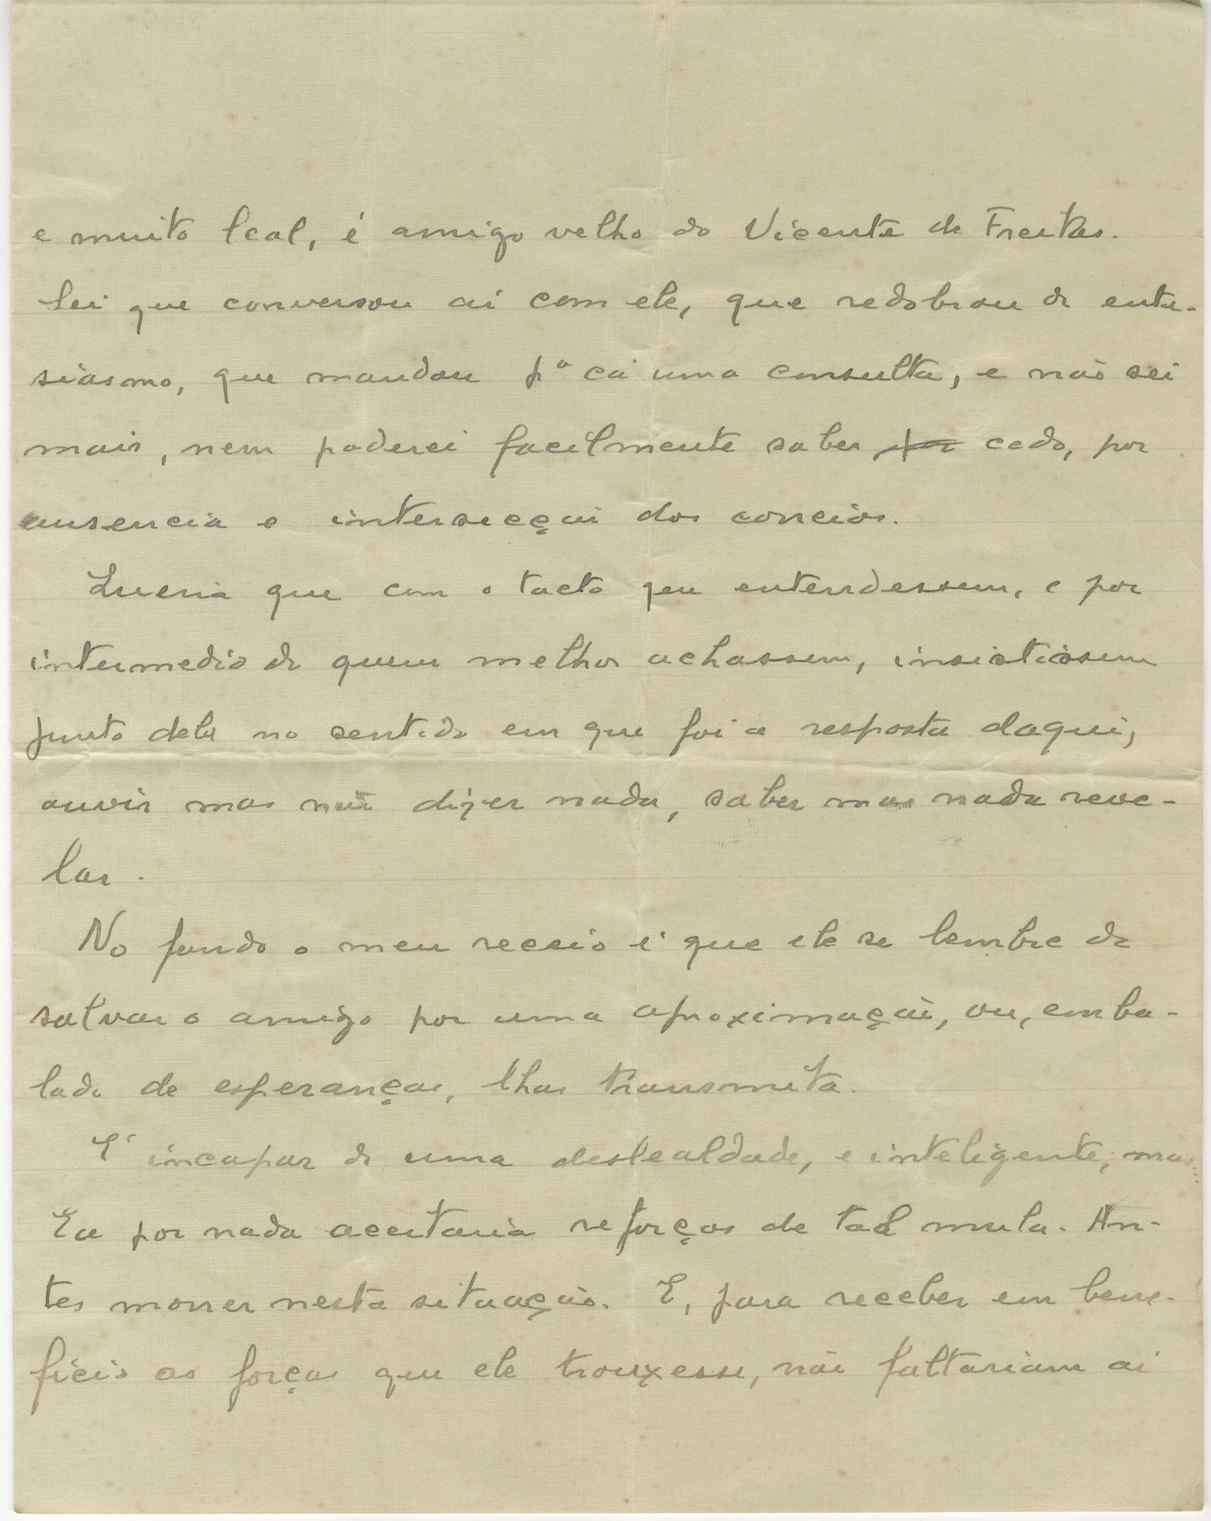 e muito leal, é amigo velho do Vicente de Freitas.
Sei que conversou aí com ele, que redobrou de entu-
siasmo, que mandou pª cá uma consulta, e não sei
mais, nem poderei facilmente saber cedo, por
ausencia e intersecção dos correios.
Queria que com o tacto que entendessem, e por
intermedio de quem melhor achassem, insistissem
junto dele no sentido em que foi a resposta daqui,
ouvir mas não dizer nada, saber mas nada reve-
lar.
No fundo o meu receio é que ele se lembre de
salvar o amigo por uma aproximação, ou, emba-
lado de esperanças, lhas transmita.
E' incapaz de uma deslealdade, e inteligente, mas...
Eu por nada aceitaria reforços de tal mula. An-
tes morrer nesta situação. E, para receber em bene-
ficio as forças que ele trouxesse, não faltariam aí